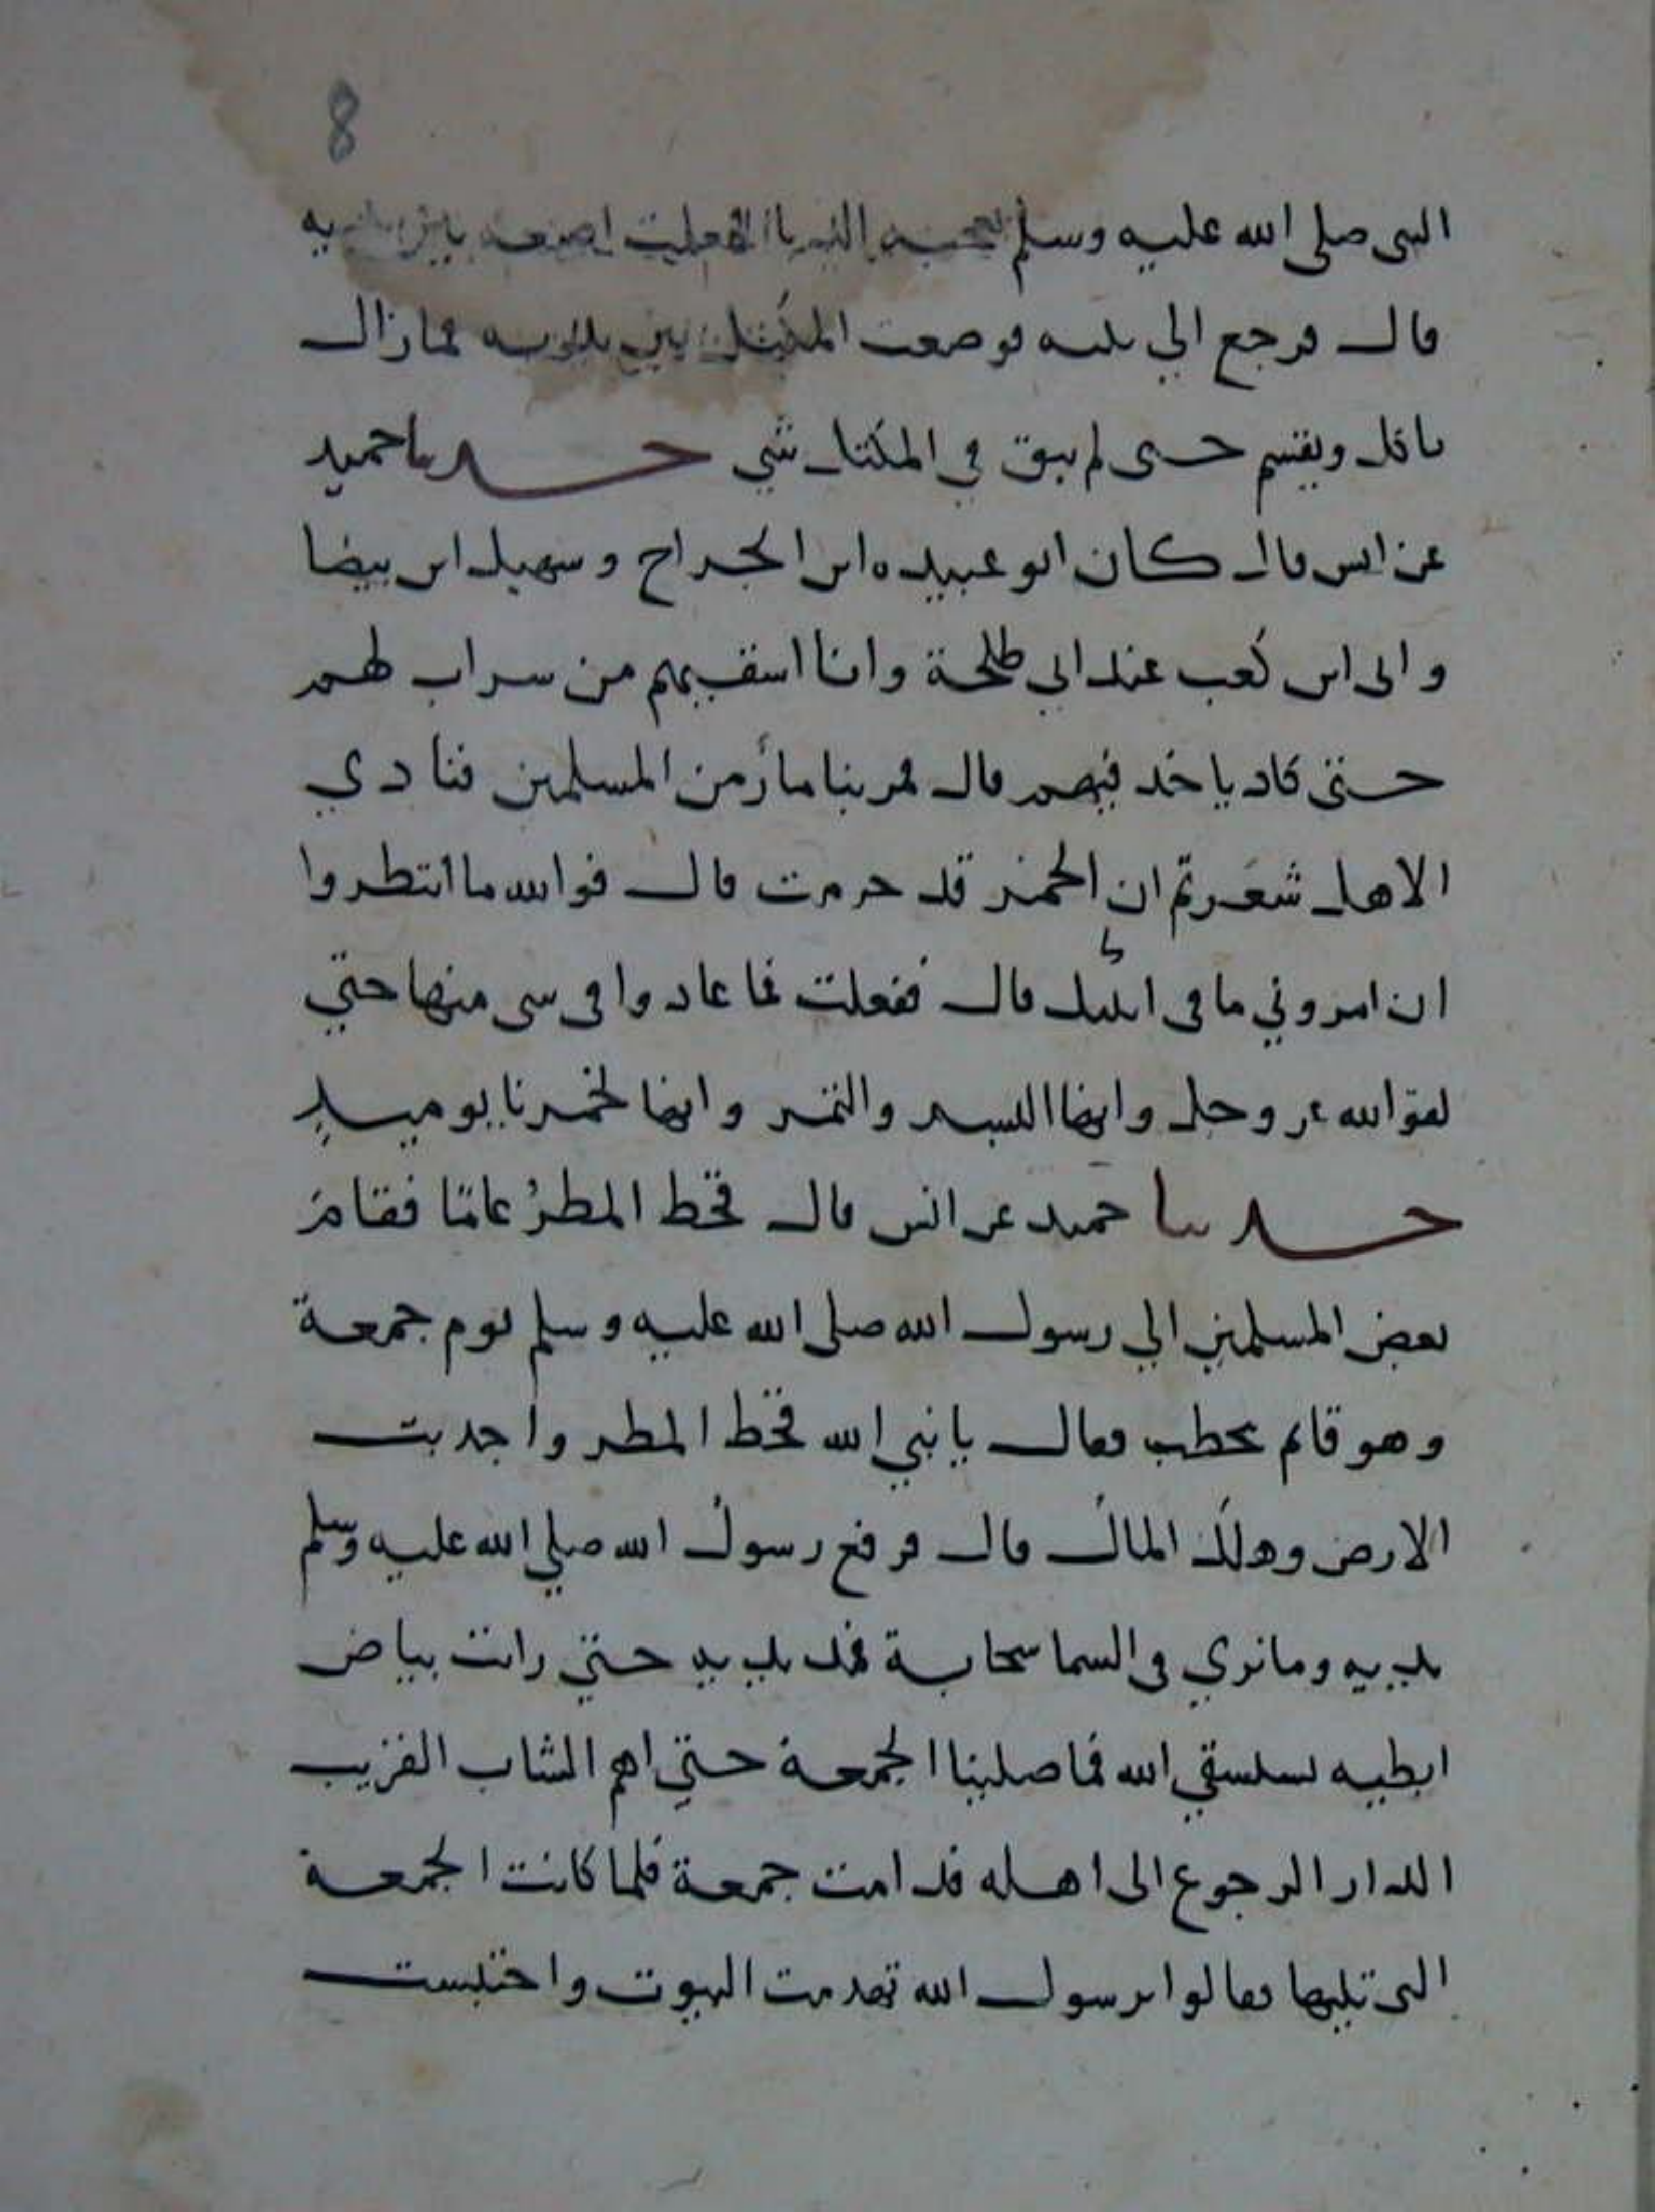 8
النبي صلى الله عليه وسلم يعجبه فجعلت اضعه بين يديه
قال فرجع الي بيته فوضعت المكتل بين يديه فما زال
ياكل ويقسم حتى لم يبق في المكتل شي حدثنا حميد
عن انس قال كان ابو عبيده ابن الجراح وسهيل ابن بيضا
وابى ابن كعب عند ابي طلحة وانا اسقيهم من شراب لهم
حتى كاد ياخذ فيهم قال فمر بنا مار من المسلمين فنادي
الا هل شعرتم ان الخمر قد حرمت قال فوالله ما انتظروا
ان امروني ما في انيتك قال ففعلت فما عادوا في شى منها حتي
لقوا الله عز وجل وانها البسر والتمر وانها لخمرنا يوميذ
حدثنا حميد عن انس قال قحط المطر عامًا فقام
بعض المسلمين الي رسول الله صلى الله عليه وسلم يوم جمعة
وهو قائم يخطب فقال يا نبي الله قحط المطر واجدبت
الارض وهلك المال قال فرفع رسول الله صلي الله عليه وسلم
يديه وما نري في السما سحابة فمد يديه حتي رايت بياض
ابطيه يستسقي الله فما صلينا الجمعة حتي اهم الشاب القريب
الدار الرجوع الى اهله فدامت جمعة فلما كانت الجمعة
التى تليها فقالوا يرسول الله تهدمت البيوت واحتبست